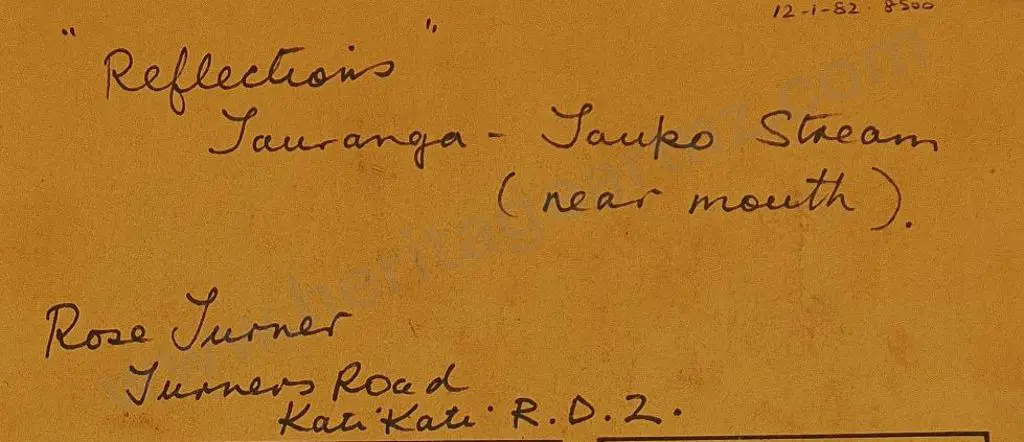 12-1-82. 8500
"Reflections"
Tauranga - Taupo Stream
(near mouth).
Rose Turner
Turners Road
Kati Kati R.D.2.